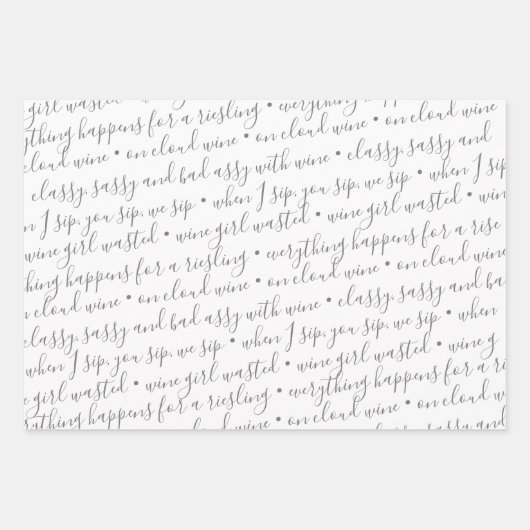 girl wasted •
everything happens for a riesling • everything happens
cloud wine • on cloud wine • on cloud wine
classy, sassy and bad assy with wine • classy, sassy and
when I sip, you sip, we sip • when I sip
wine girl wasted • wine girl wasted • wine girl wasted
everything happens for a riesling • everything happens for a rise
on cloud wine • on cloud wine • on cloud wine • on cloud wine
classy, sassy and bad assy with wine • classy, sassy and ba
when I sip, you sip, we sip • when I sip, you sip, we sip • when
wine girl wasted • wine girl wasted • wine g
everything happens for a riesling • everything happens for a
on cloud wine • on cloud wine
classy, sassy and